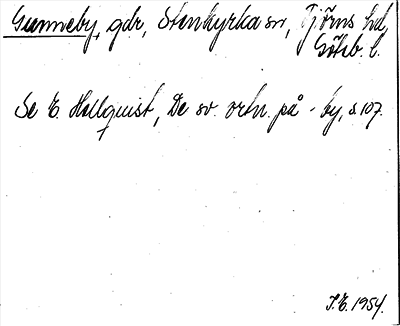 Gunneby, gdr, Stenkyrka sn, Tjörns hd,
Göteb. l.
Se E. Hellquist, De sv. ortn. på -by, s. 107.
I.E. 1954.